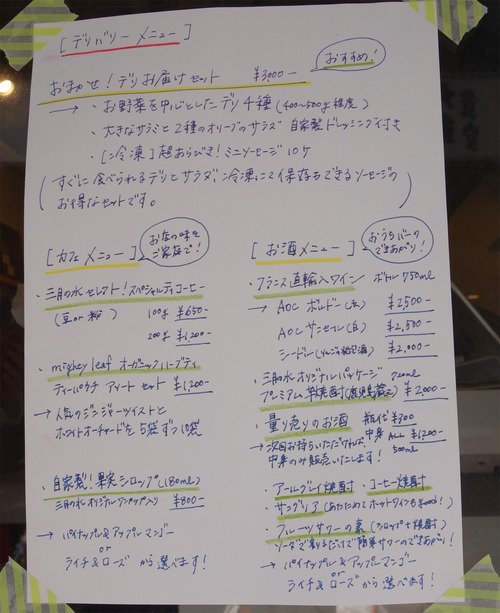 [デリバリーメニュー]
おすすめ!
おまかせ!デリお届けセット ¥3,000-
→ ・お野菜を中心としたデリ4種(400~500g程度)
・大きなサラミと2種のオリーブのサラダ 自家製ドレッシング付き
・[冷凍]超あらびき!ミニソーセージ10ケ
(すぐに食べられるデリとサラダ、冷凍にて保存もできるソーセージの
お得なセットです。)
[カフェメニュー]
お店の味を
ご家庭で!
・三月の水セレクト!スペシャルティコーヒー
(豆or粉) 100g ¥650-
200g ¥1,200-
・mighty leaf オーガニックハーブティ
ティーパウチ アソートセット ¥1,200-
→人気のジンジャーツイストと
ホワイトオーチャードを5袋ずつ10袋
・自家製!果実シロップ(180ml)
三月の水オリジナルワンカップ入り ¥800-
→ パイナップル&アップルマンゴー
or
ライチ&ローズ から選べます!
[お酒メニュー]
おうちバーの
できあがり!
・フランス直輸入ワイン ボトル750ml
→ AOC ボルドー(赤) ¥2,500-
AOC サンセール(白) ¥2,500-
シードル(りんご発泡酒) ¥2,000-
・三月の水オリジナルパッケージ 720ml
プレミアム芋焼酎(鹿児島蔵元) ¥2,000-
・量り売りのお酒 瓶代¥300
→次回お持ちいただければ、中身 ALL ¥1,200-
中身のみ販売いたします! 500ml
・アールグレイ焼酎 ・コーヒー焼酎
・サングリア(あたためてホットワインもgood!)
・フルーツサワーの素(シロップ+焼酎)
ソーダで割るだけで簡単サワーのできあがり!
→ パイナップル&アップルマンゴー
or
ライチ&ローズから選べます!